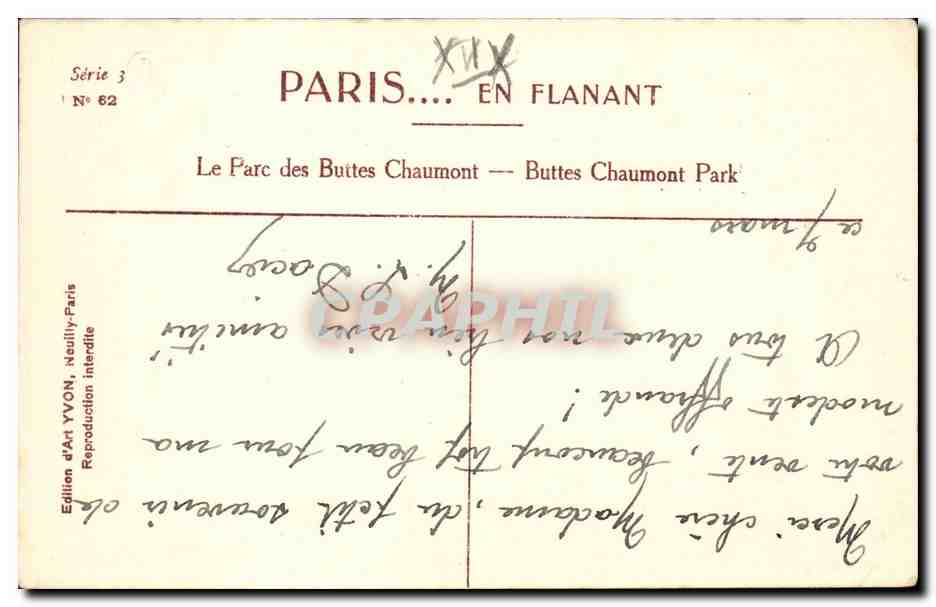 Série 3
N° 62
XIX
PARIS.... EN FLANANT
Le Parc des Buttes Chaumont — Buttes Chaumont Park
Edition d'Art YVON, Neuilly-Paris
Reproduction interdite
CPARPHIL
ce 7 mars
Merci chère Madame, du petit souvenir de
votre vente, beaucoup trop beau pour ma
modeste offrande !
A tous deux nos bien vives amitiés